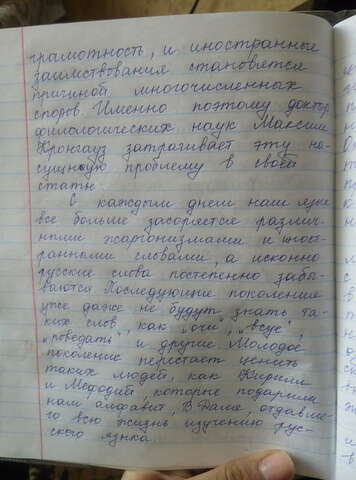 грамотность, и иностранные
заимствования становятся
причиной многочисленных
споров. Именно поэтому доктор
филологических наук Максим
Кронгауз затрагивает эту на-
сущную проблему в своей
статье
С каждым днем наш язык
все больше засоряется различ-
ными жаргонизмами и иност-
ранными словами, а исконно
русские слова постепенно забы-
ваются. Последующие поколения
уже даже не будут знать та-
ких слов, как „очи", „всуе",
„поведать" и другие. Молодое
поколение перестает ценить
таких людей, как Кирилл
и Мефодий, которые подарили
нам алфавит, В. Даля, отдавше-
го всю жизнь изучению рус-
ского языка